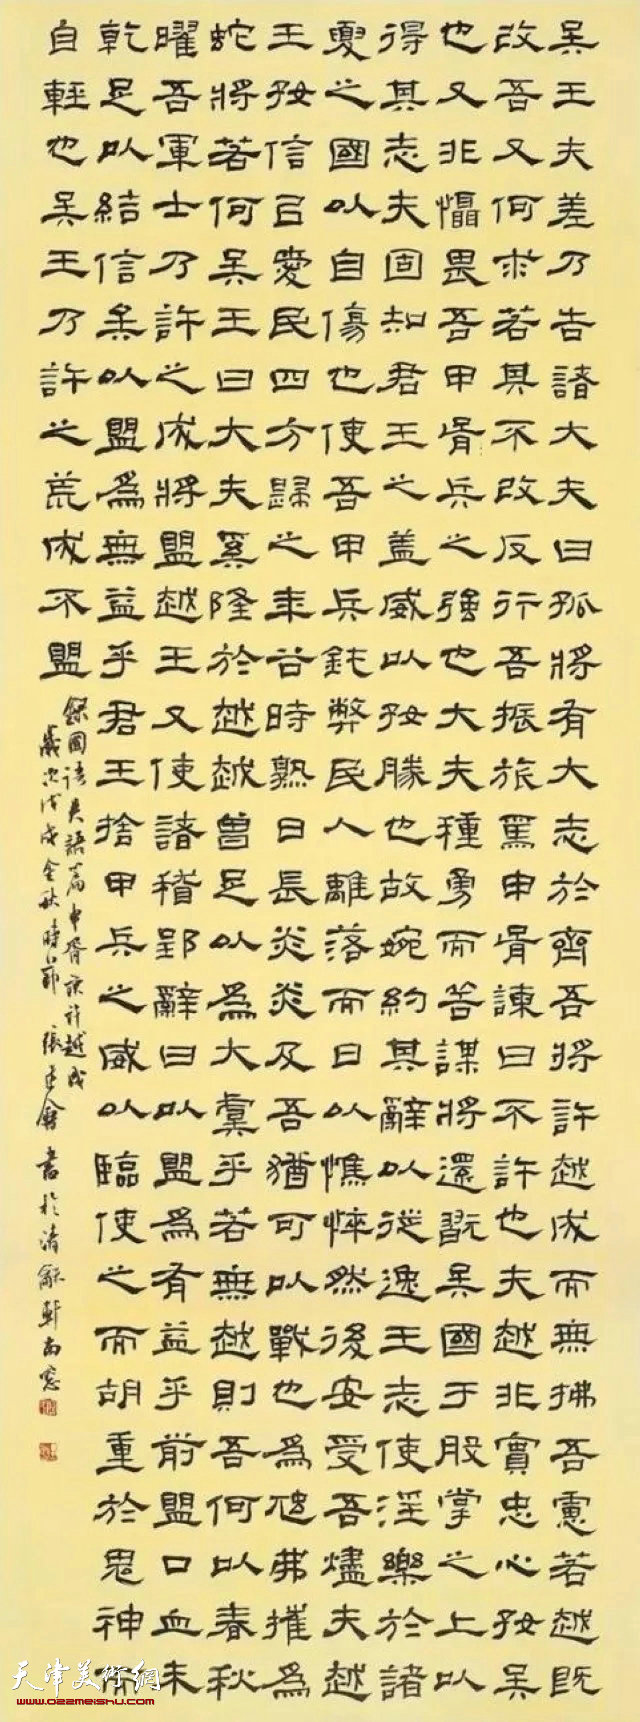 吳王夫差乃告諸大夫曰孤將有大志於齊吾將許越成而無拂吾慮若越既
改吾又何求若其不改反行吾振旅焉申胥諫曰不許也夫越非實忠心好吳
也又非懾畏吾甲胥兵之强也大夫種勇而善謀將還翫吳國于股掌之上以
得其志夫固知君王之蓋威以好勝也故婉約其辭以從逸王志使淫樂於諸
夏之國以自傷也使吾甲兵鈍弊民人離落而日以憔悴然後安受吾燼夫越
王好信㠯愛民四方歸之年谷時熟日長炎炎及吾猶可以戰也為虺弗摧為
蛇將若何吳王曰大夫奚隆於越越曾足以為大虞乎若無越則吾何以春秋
曜吾軍士乃許之成將盟越王又使諸稽郢辭曰以盟為有益乎前盟口血未
乾足以結信矣以盟為無益乎君王捨甲兵之威以臨使之而胡重於鬼神而
自輕也吳王乃許之荒成不盟
録國語吳語篇申胥諫許越成
歲次戊戌金秋時節張建會書於清龢軒南窗
天津美術網
www.022meishu.com